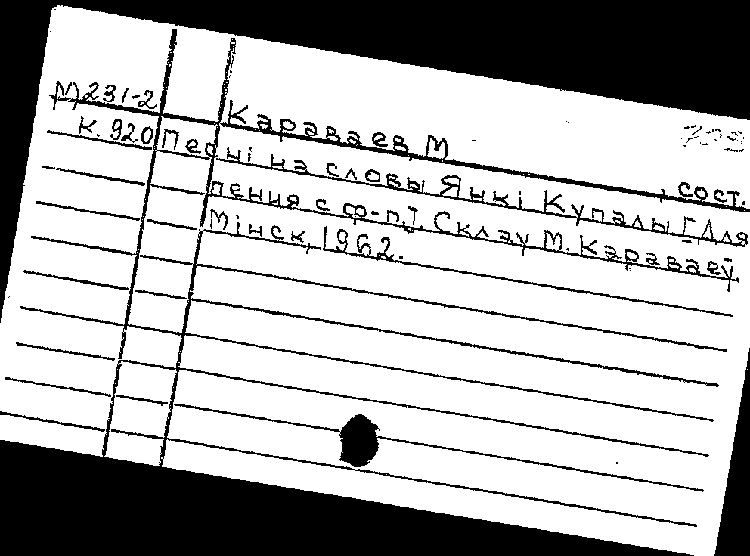 М231-2
К. 920
Караваев, М., сост.
Песні на словы Янкі Купалы [Для
пения с ф-п.]. Склаў М. Караваеў.
Мінск, 1962.